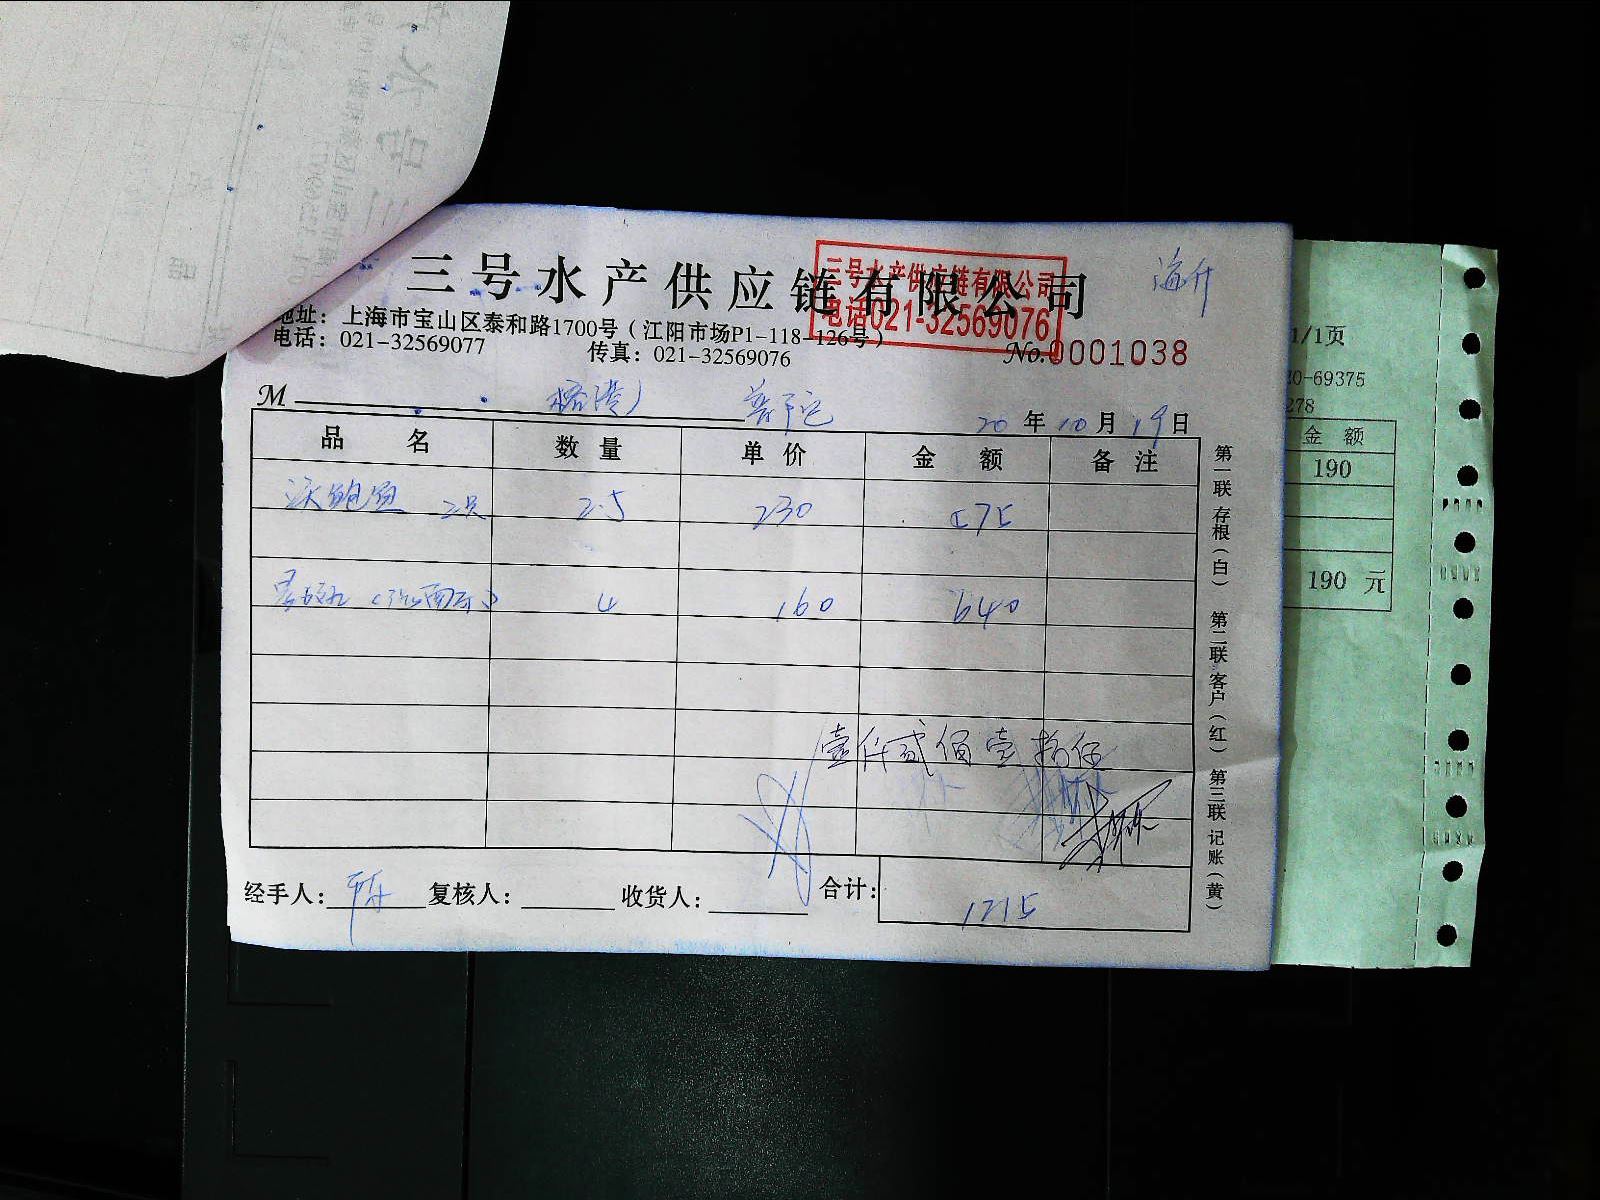 三号水产供应链有限公司
三号水产供应链有限公司
电话021-32569076
地址：上海市宝山区泰和路1700号（江阳市场P1-118-126号）
电话：021-32569077 传真：021-32569076
No.0001038
M
20年10月19日
品 名 数 量 单 价 金 额 备 注
2只 2.5 230 575
4 160 640
壹仟贰佰壹拾伍
经手人： 复核人： 收货人： 合计： 1215
第一联 存根（白） 第二联 客户（红） 第三联 记账（黄）
1/1页
0-69375
278
金 额
190
190 元